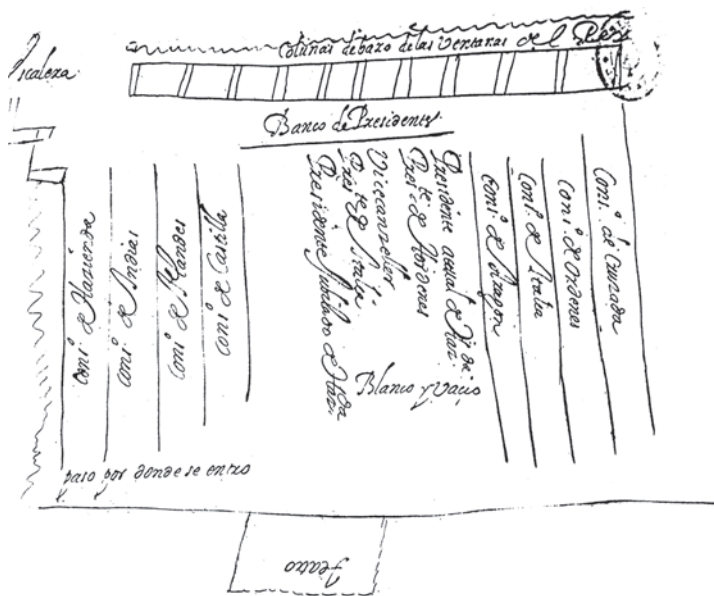 Colunas debaxo de las Ventanas de el
Escalera
Banco de Presidentes
Conº de Hazienda
Conº de Indias
Conº de Flandes
Conº de Castilla
Presidente Jubilado de Hazda
Preste de Italia
Vicecanzeller
Preste de Hordenes
Presidente actual de Hazda
Conº de Aragon
Conº de Italia
Conº de Ordenes
Conº de Cruzada
Blanco y Vacio
paso por donde se entro
Teatro